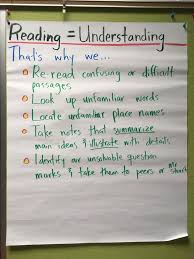 Reading = Understanding
That's why we...
Re-read confusing or difficult
passages
Look up unfamiliar words
Locate unfamiliar place names
Take notes that summarize
main ideas & illustrate with details
Identify are unsolvable question
marks & take them to peers or